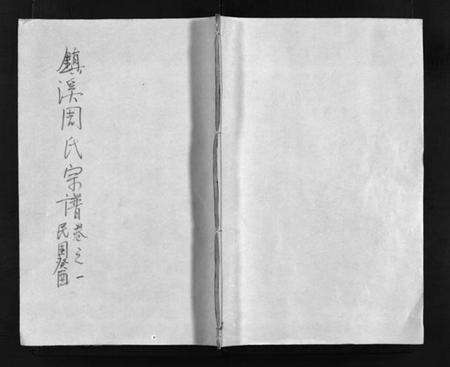 鎮溪周氏宗谱卷之一
民国癸酉